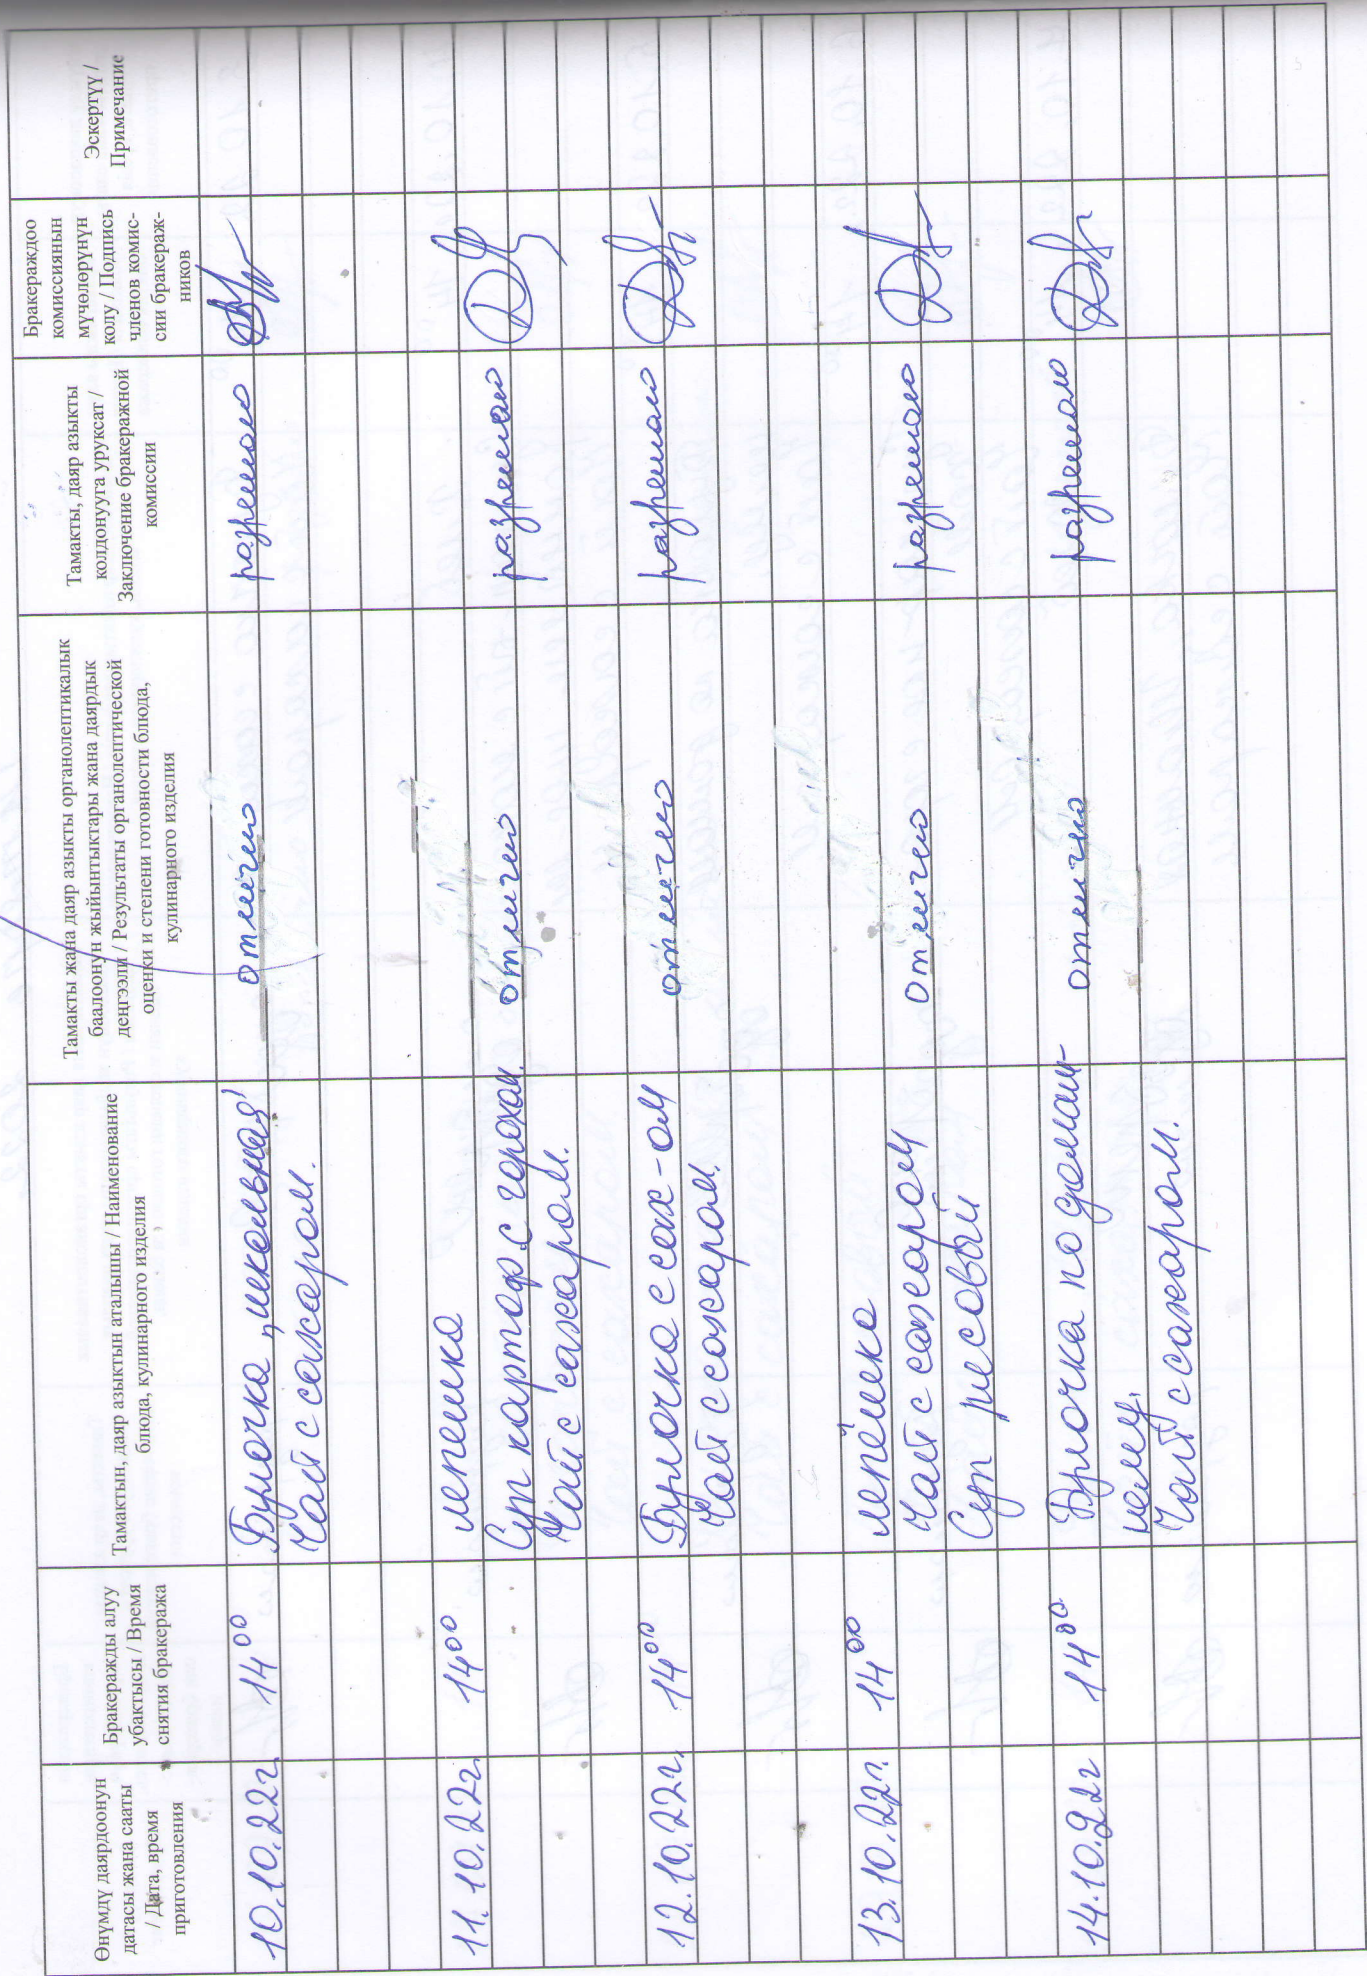 Өнүмдү даярдоонун
датасы жана сааты
/ Дата, время
приготовления
Бракеражды алуу
убактысы / Время
снятия бракеража
Тамактын, даяр азыктын аталышы / Наименование
блюда, кулинарного изделия
Тамакты жана даяр азыкты органолептикалык
баалоонун жыйынтыктары жана даярдык
деңгээли / Результаты органолептической
оценки и степени готовности блюда,
кулинарного изделия
Тамакты, даяр азыкты
колдонууга уруксат /
Заключение бракеражной
комиссии
Бракераждоо
комиссиянын
мүчөлөрүнүн
колу / Подпись
членов комис-
сии бракераж-
ников
Эскертүү /
Примечание
10.10.22г. 14 00 Булочка „школьная" отлично разрешаю
Чай с сахаром.
11.10.22г. 14 00 лепешка
Суп картоф. с горохом. отлично разрешаю
Чай с сахаром.
12.10.22г. 14 00 Булочка с сах-ом отлично разрешаю
Чай с сахаром.
13.10.22г. 14 00 лепёшка
Чай с сахаром отлично разрешаю
Суп рисовый
14.10.22г 14 00 Булочка по домаш- отлично разрешаю
нему.
Чай с сахаром.